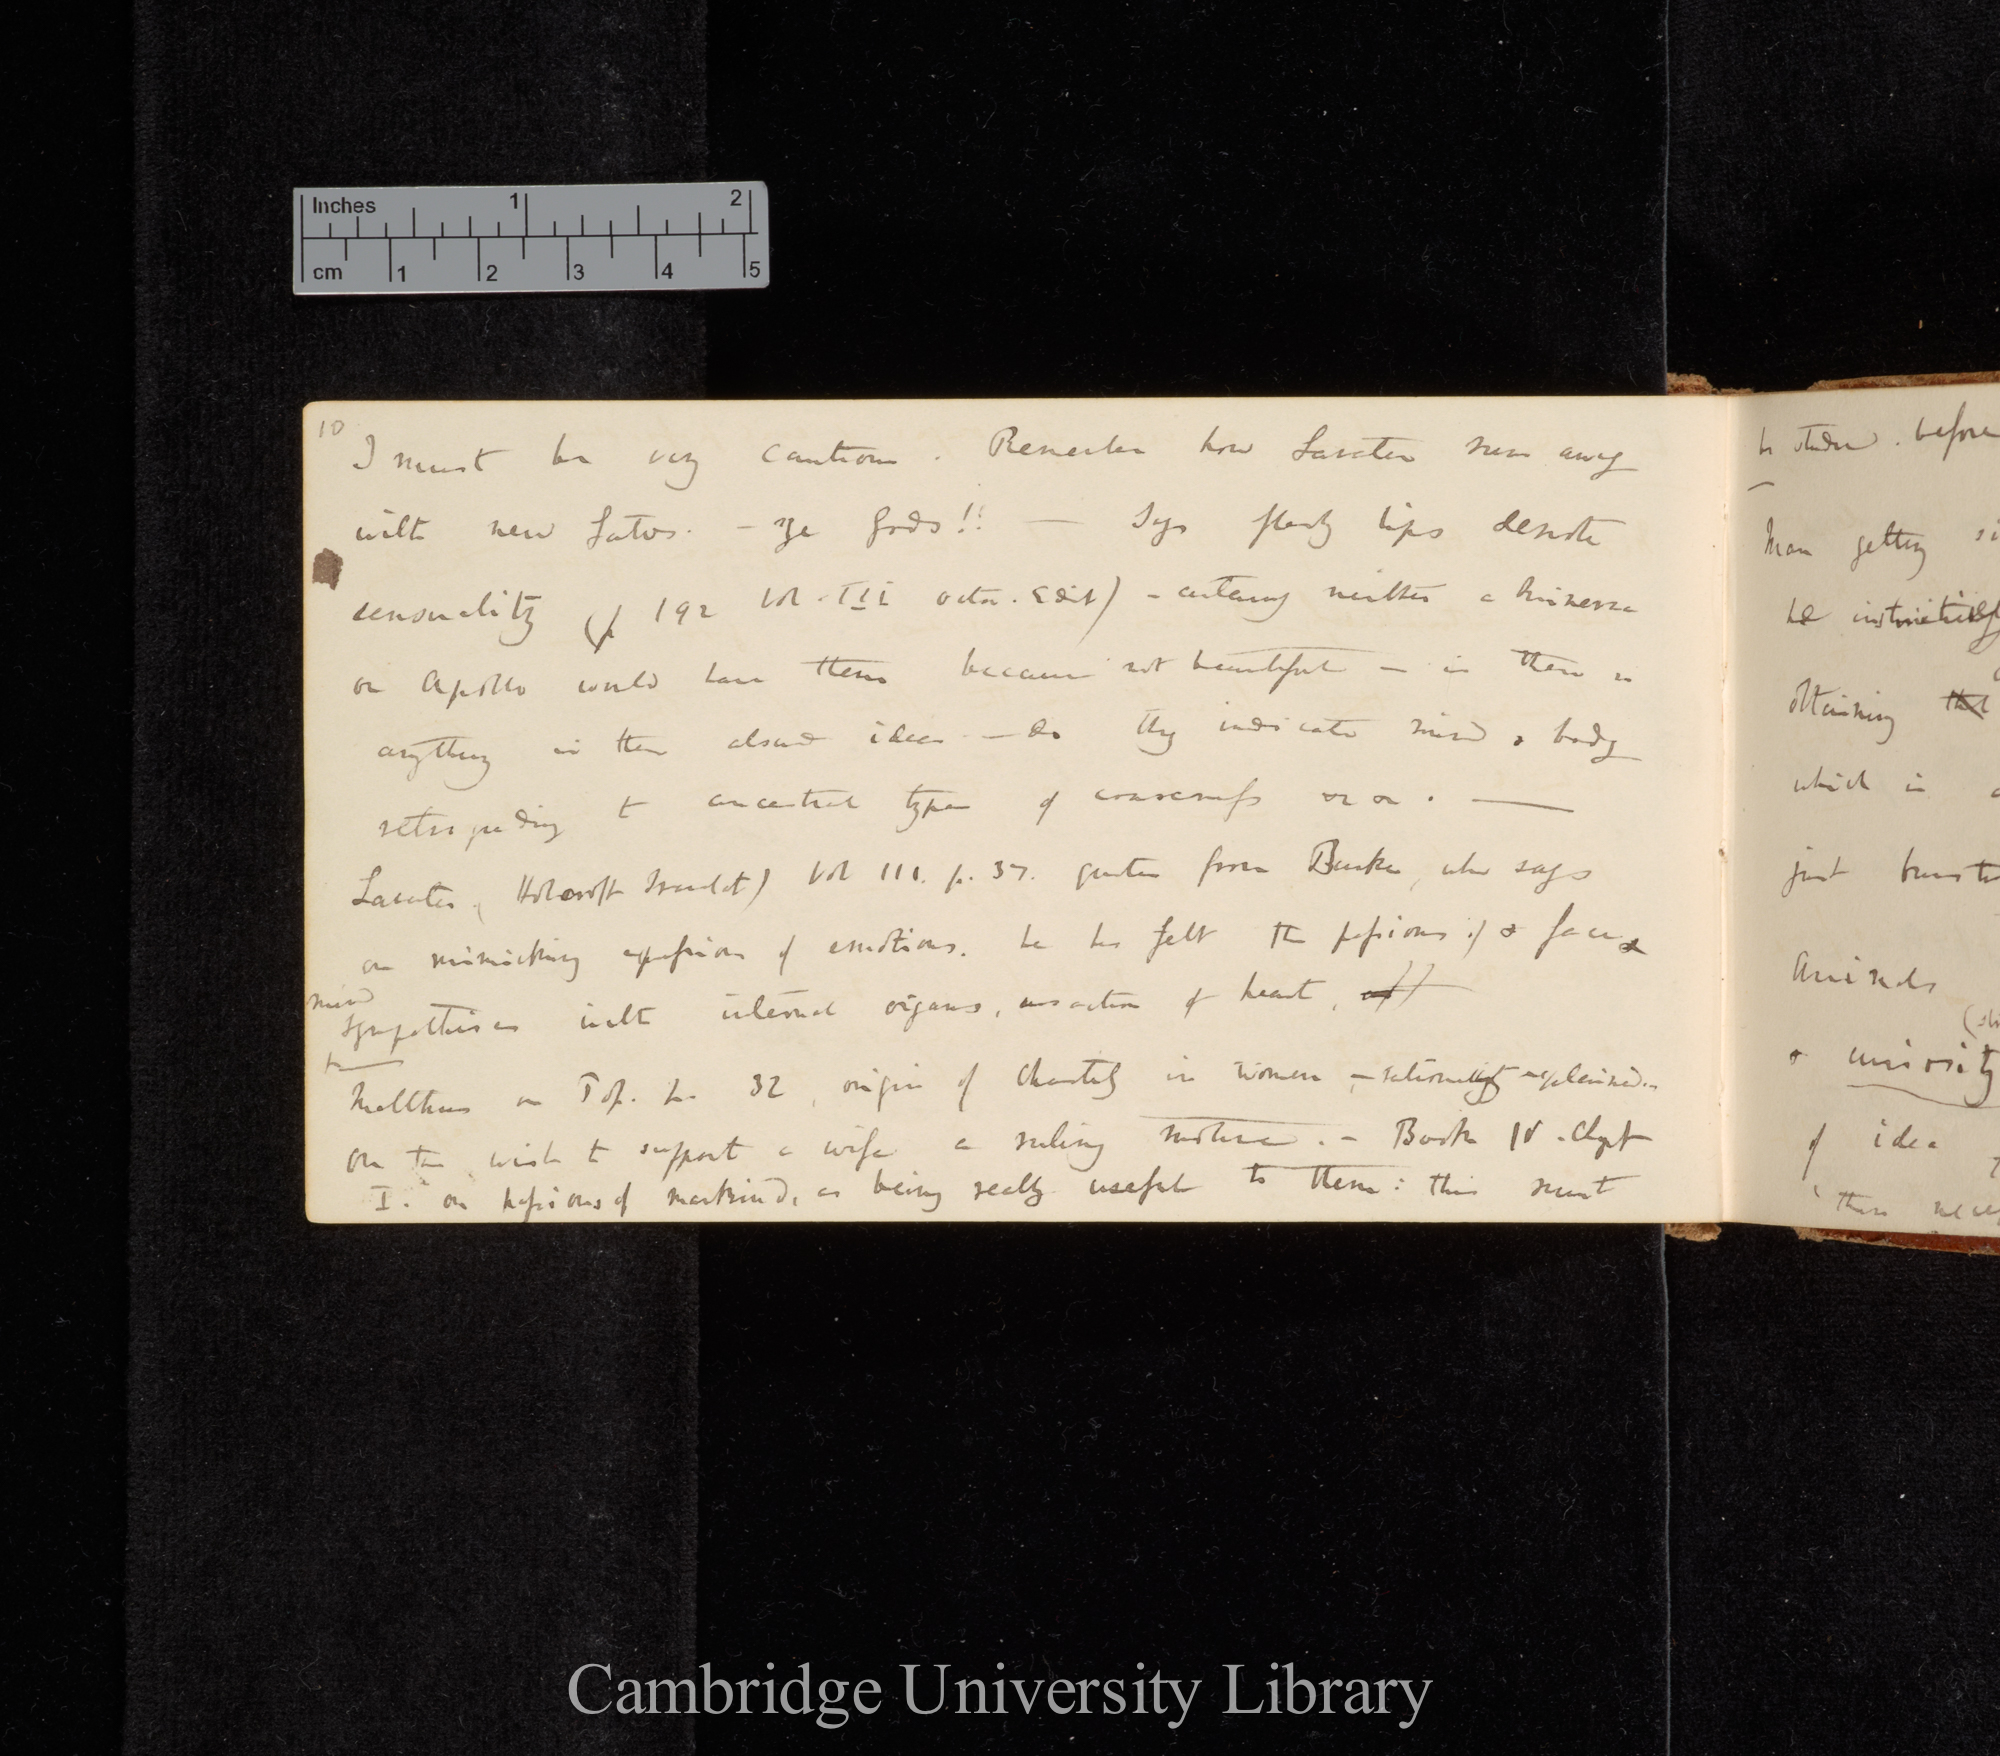 Inches 1 2
cm 1 2 3 4 5
10
I must be very cautious. Remember how Lavater run away
with new Lavater. – ye Gods!! — Says fleshy lips denote
sensuality (p 192 Vol. III octav. Edit) – certainly neither a Minerva
or Apollo would have them because not beautiful – is there
anything in these absurd ideas. – do they indicate mind & body
retrograding to ancestral type of consciousness &c &c. —
Lavater. (Holcroft Translat) Vol III. p. 37. quotes from Burke, who says
on mimicking expression of emotions. he has felt the passions: & face &
mind
sympathises with internal organs, as action of heart,
Malthus on Pop. p. 32, origin of Chastity in women – rationally explained. –
on the wish to support a wife a ruling motive. – Book IV. Chapt
I. on passions of mankind, as being really useful to them: this must
be studied. before
Man getting
be instinctively
obtaining that
which is
just burst
Animals
& curiosity
of idea
there
Cambridge University Library